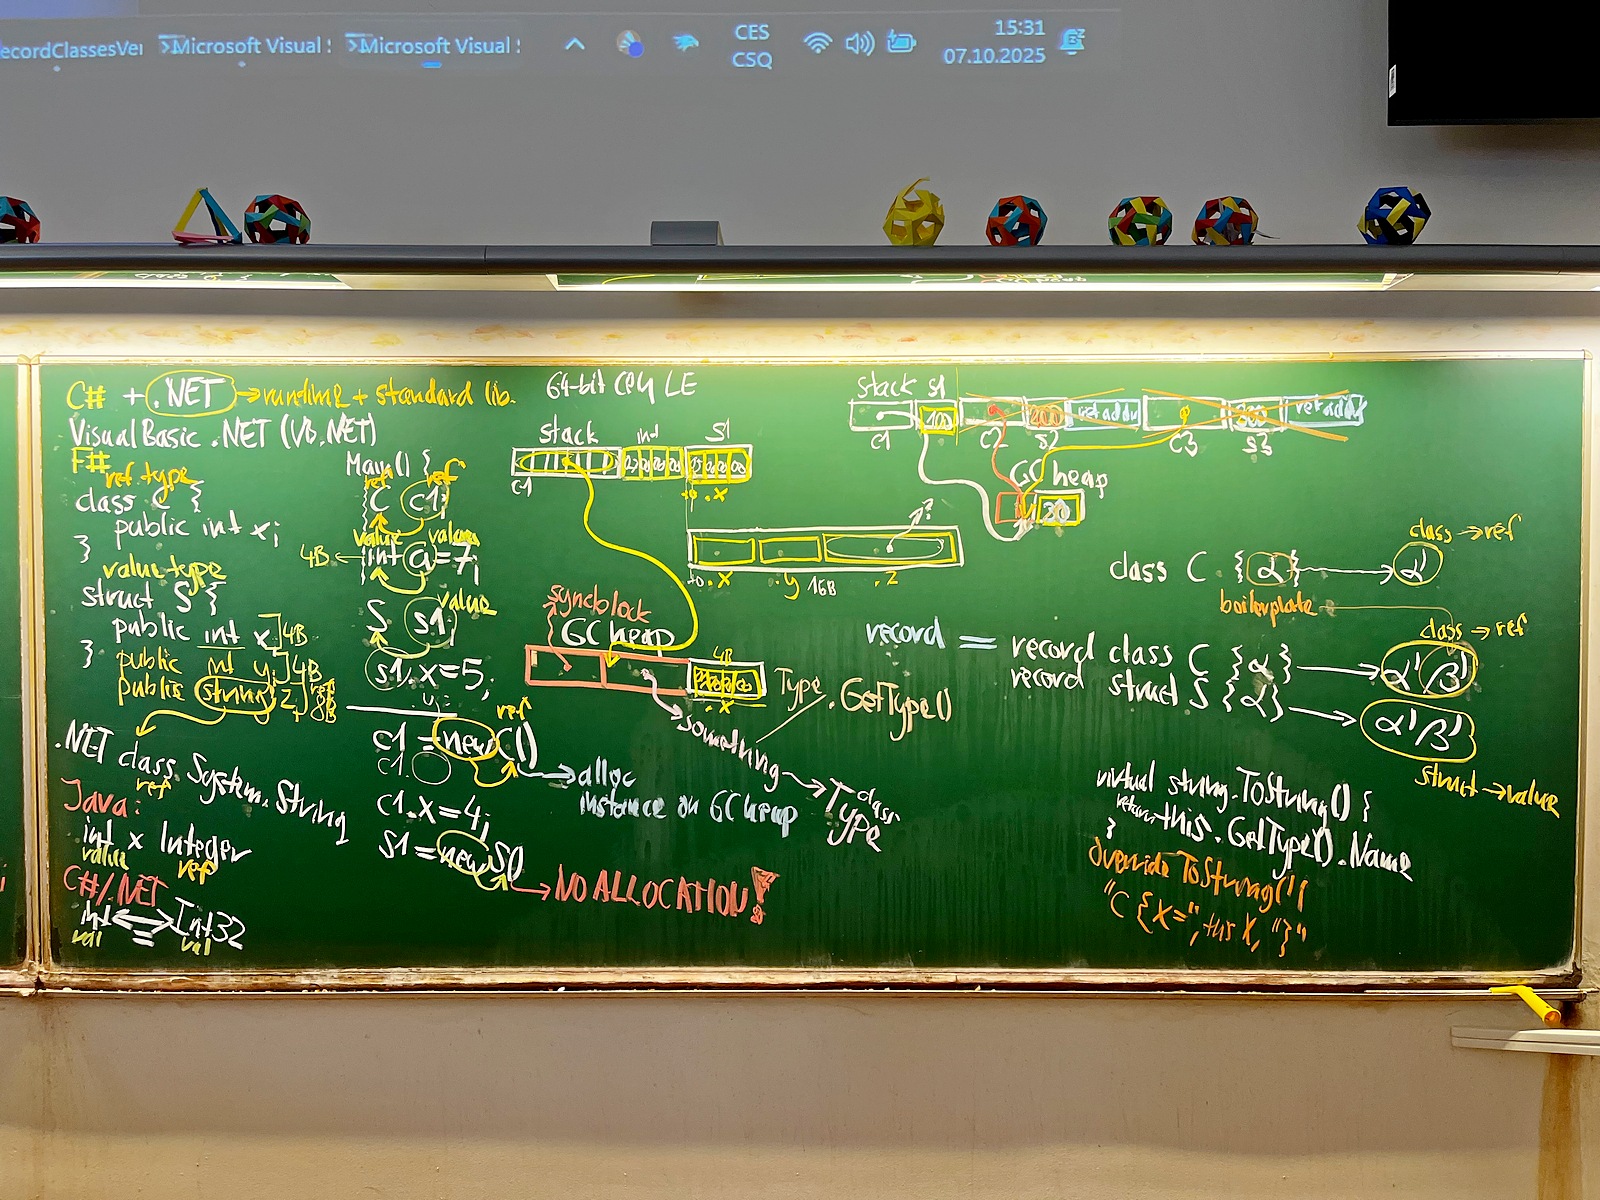 ecordClassesVer
Microsoft Visual S
Microsoft Visual S
CES
CSQ
15:31
07.10.2025
C# + .NET → runtime + standard lib.
Visual Basic .NET (VB.NET)
F#
ref type
class C {
public int x;
}
value type
struct S {
public int x; 4B
public int y; 4B
public string z; ref 8B
}
.NET class System.String
ref
Java:
int x Integer
value ref
C#/.NET
int ⟺ Int32
val = val
Main() {
ref ref
C c1;
value value
4B ← int a = 7;
value
S s1;
s1.x = 5;
y
ref
c1 = new C()
→ alloc
instance on GC heap
c1.
c1.x = 4;
s1 = new S()
→ NO ALLOCATION!
64-bit CPU LE
stack int S1
c1
+0 .x
?
+0 .x .y 16B .z
syncblock
GC heap
4B
.x
Type .GetType()
something → Type
class
stack s1
100 200 ret addr 300 ret addr
c1 c2 s2 c3 s3
GC heap
30
class → ref
class C {α} → α'
boilerplate
class → ref
record = record class C {α} → α'β'
record struct S {α} → α'β'
struct → value
virtual string.ToString() {
return this.GetType().Name
}
override ToString() {
"C { X=", this X, "}"